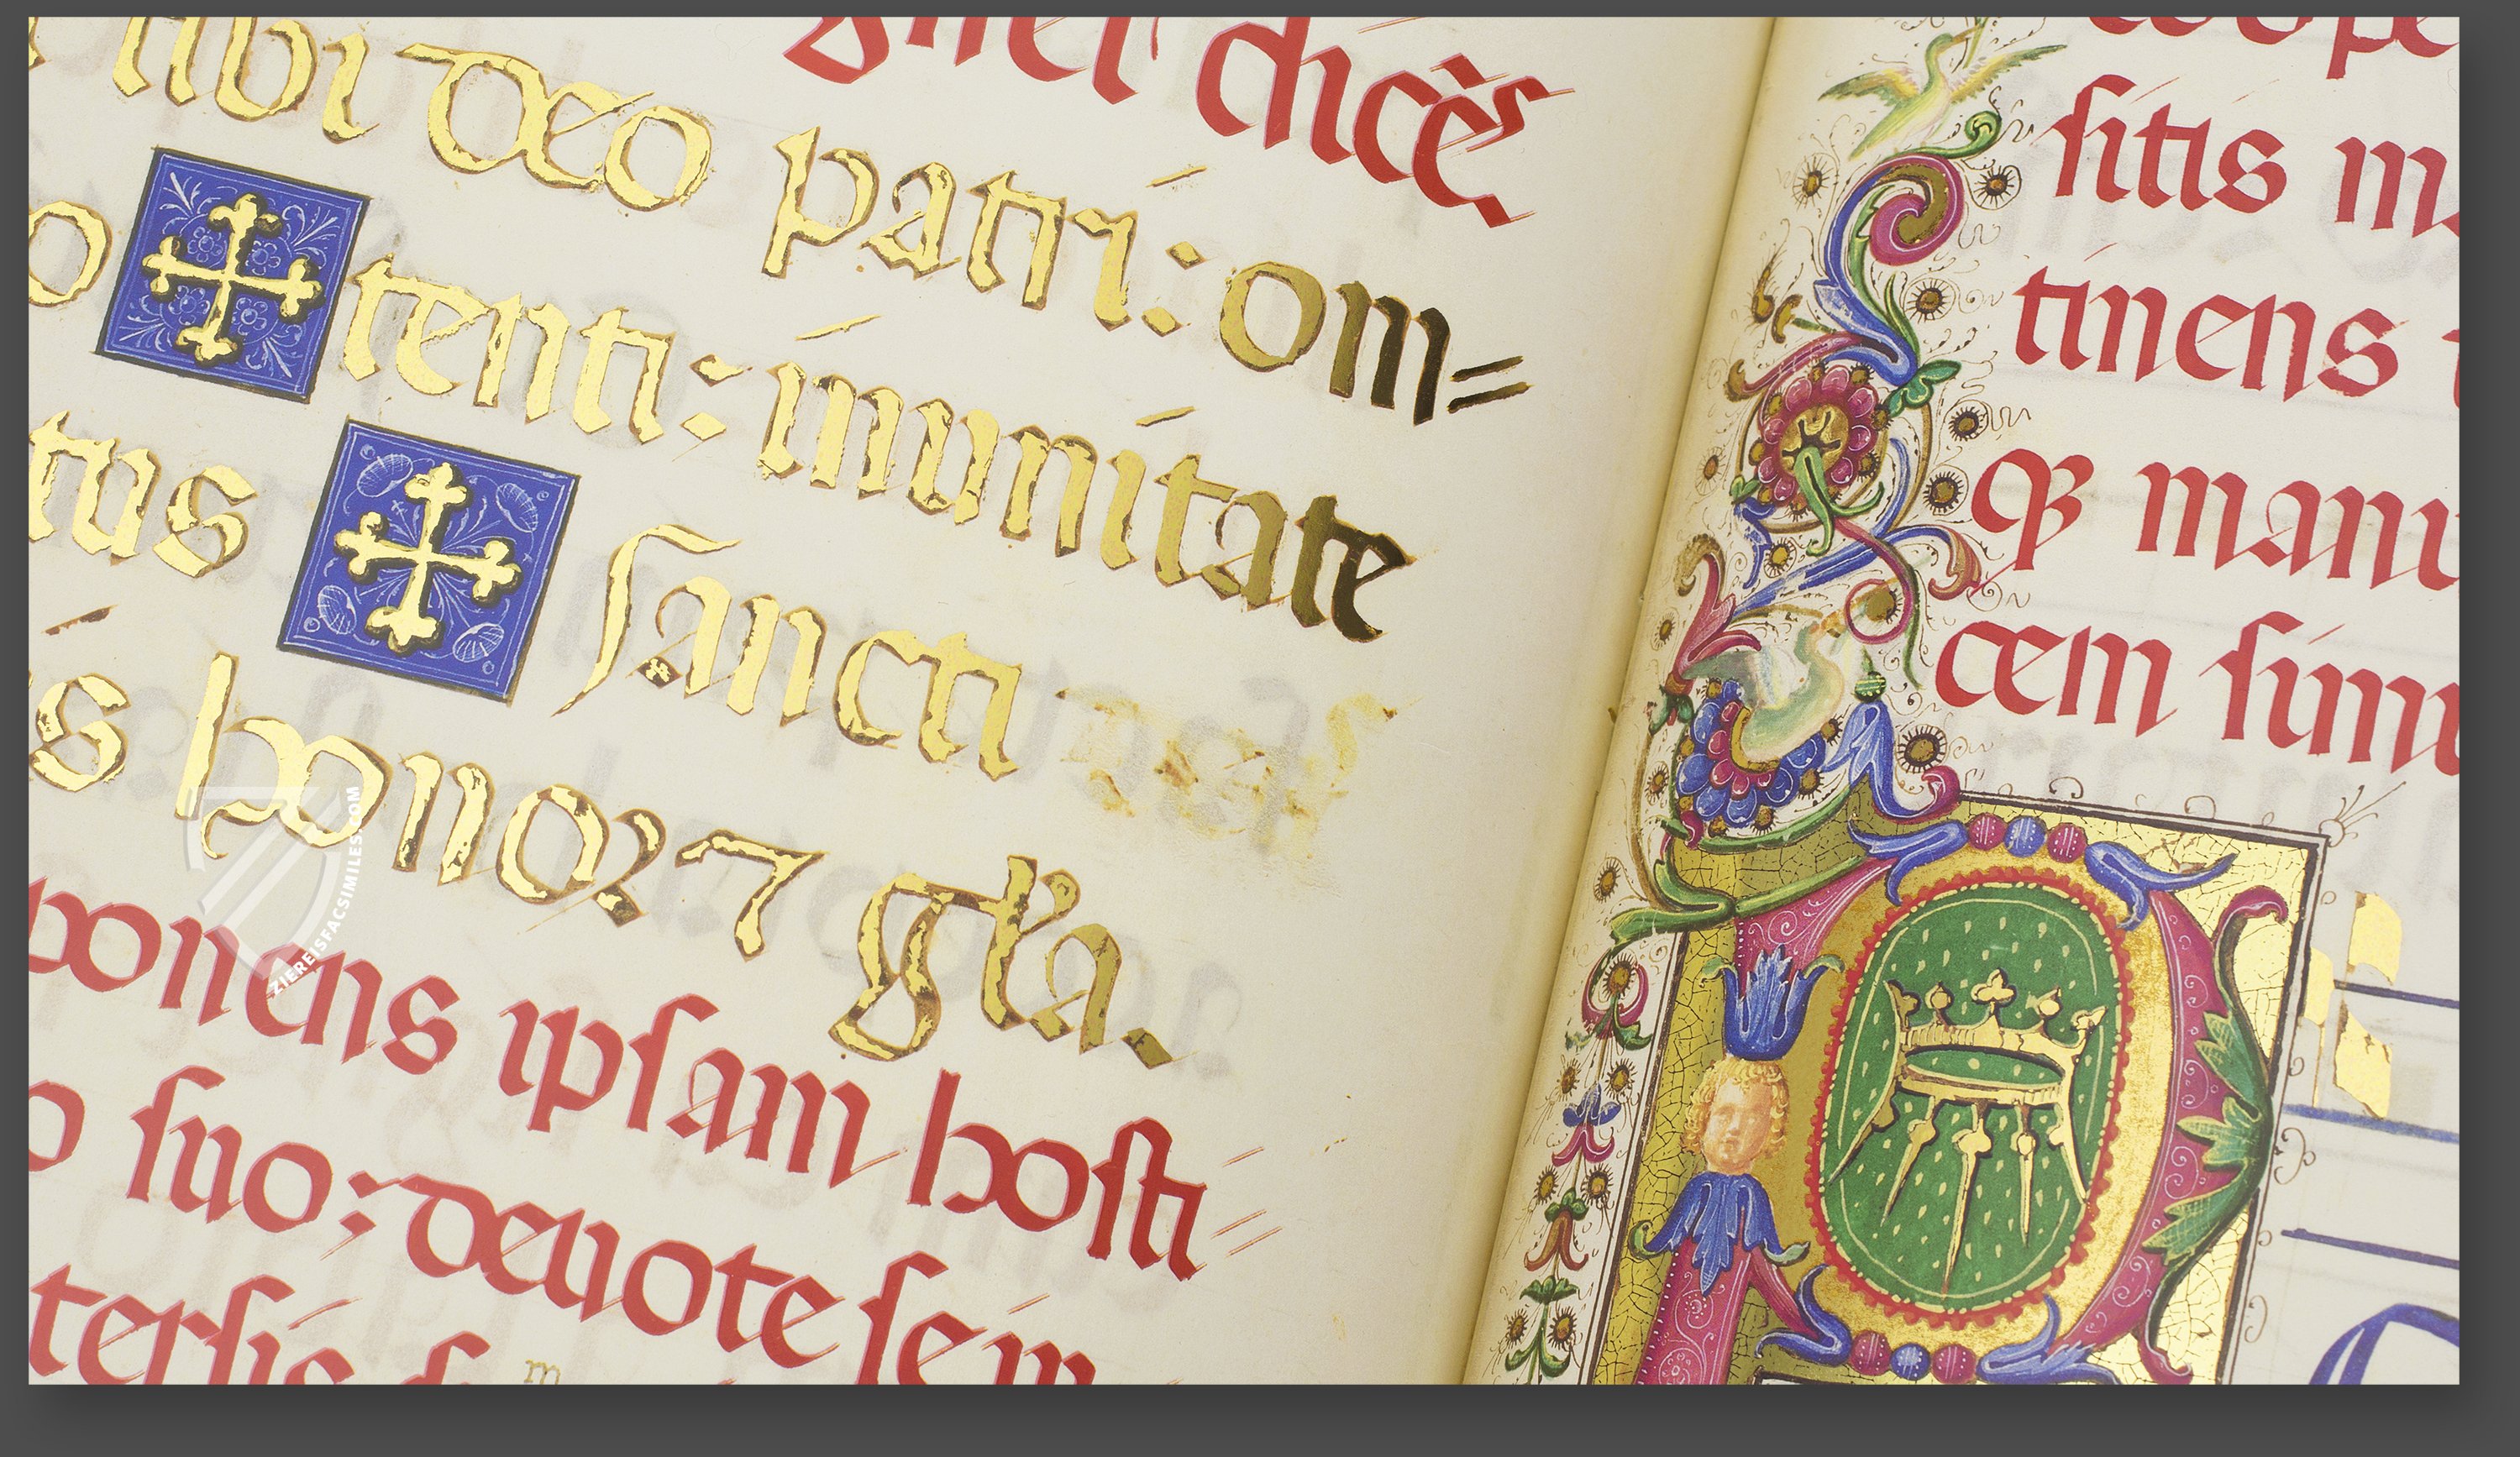 dicēs
tibi deo patri: om=
o ✠ tenti: in unitate
tus ✠ sancti
s honor ⁊ gl'a.
ponens ipsam hosti
o suo; deuote sem
tersis
m
sitis m
tinens
manu
cem simi
ZIEREISFACSIMILES.COM